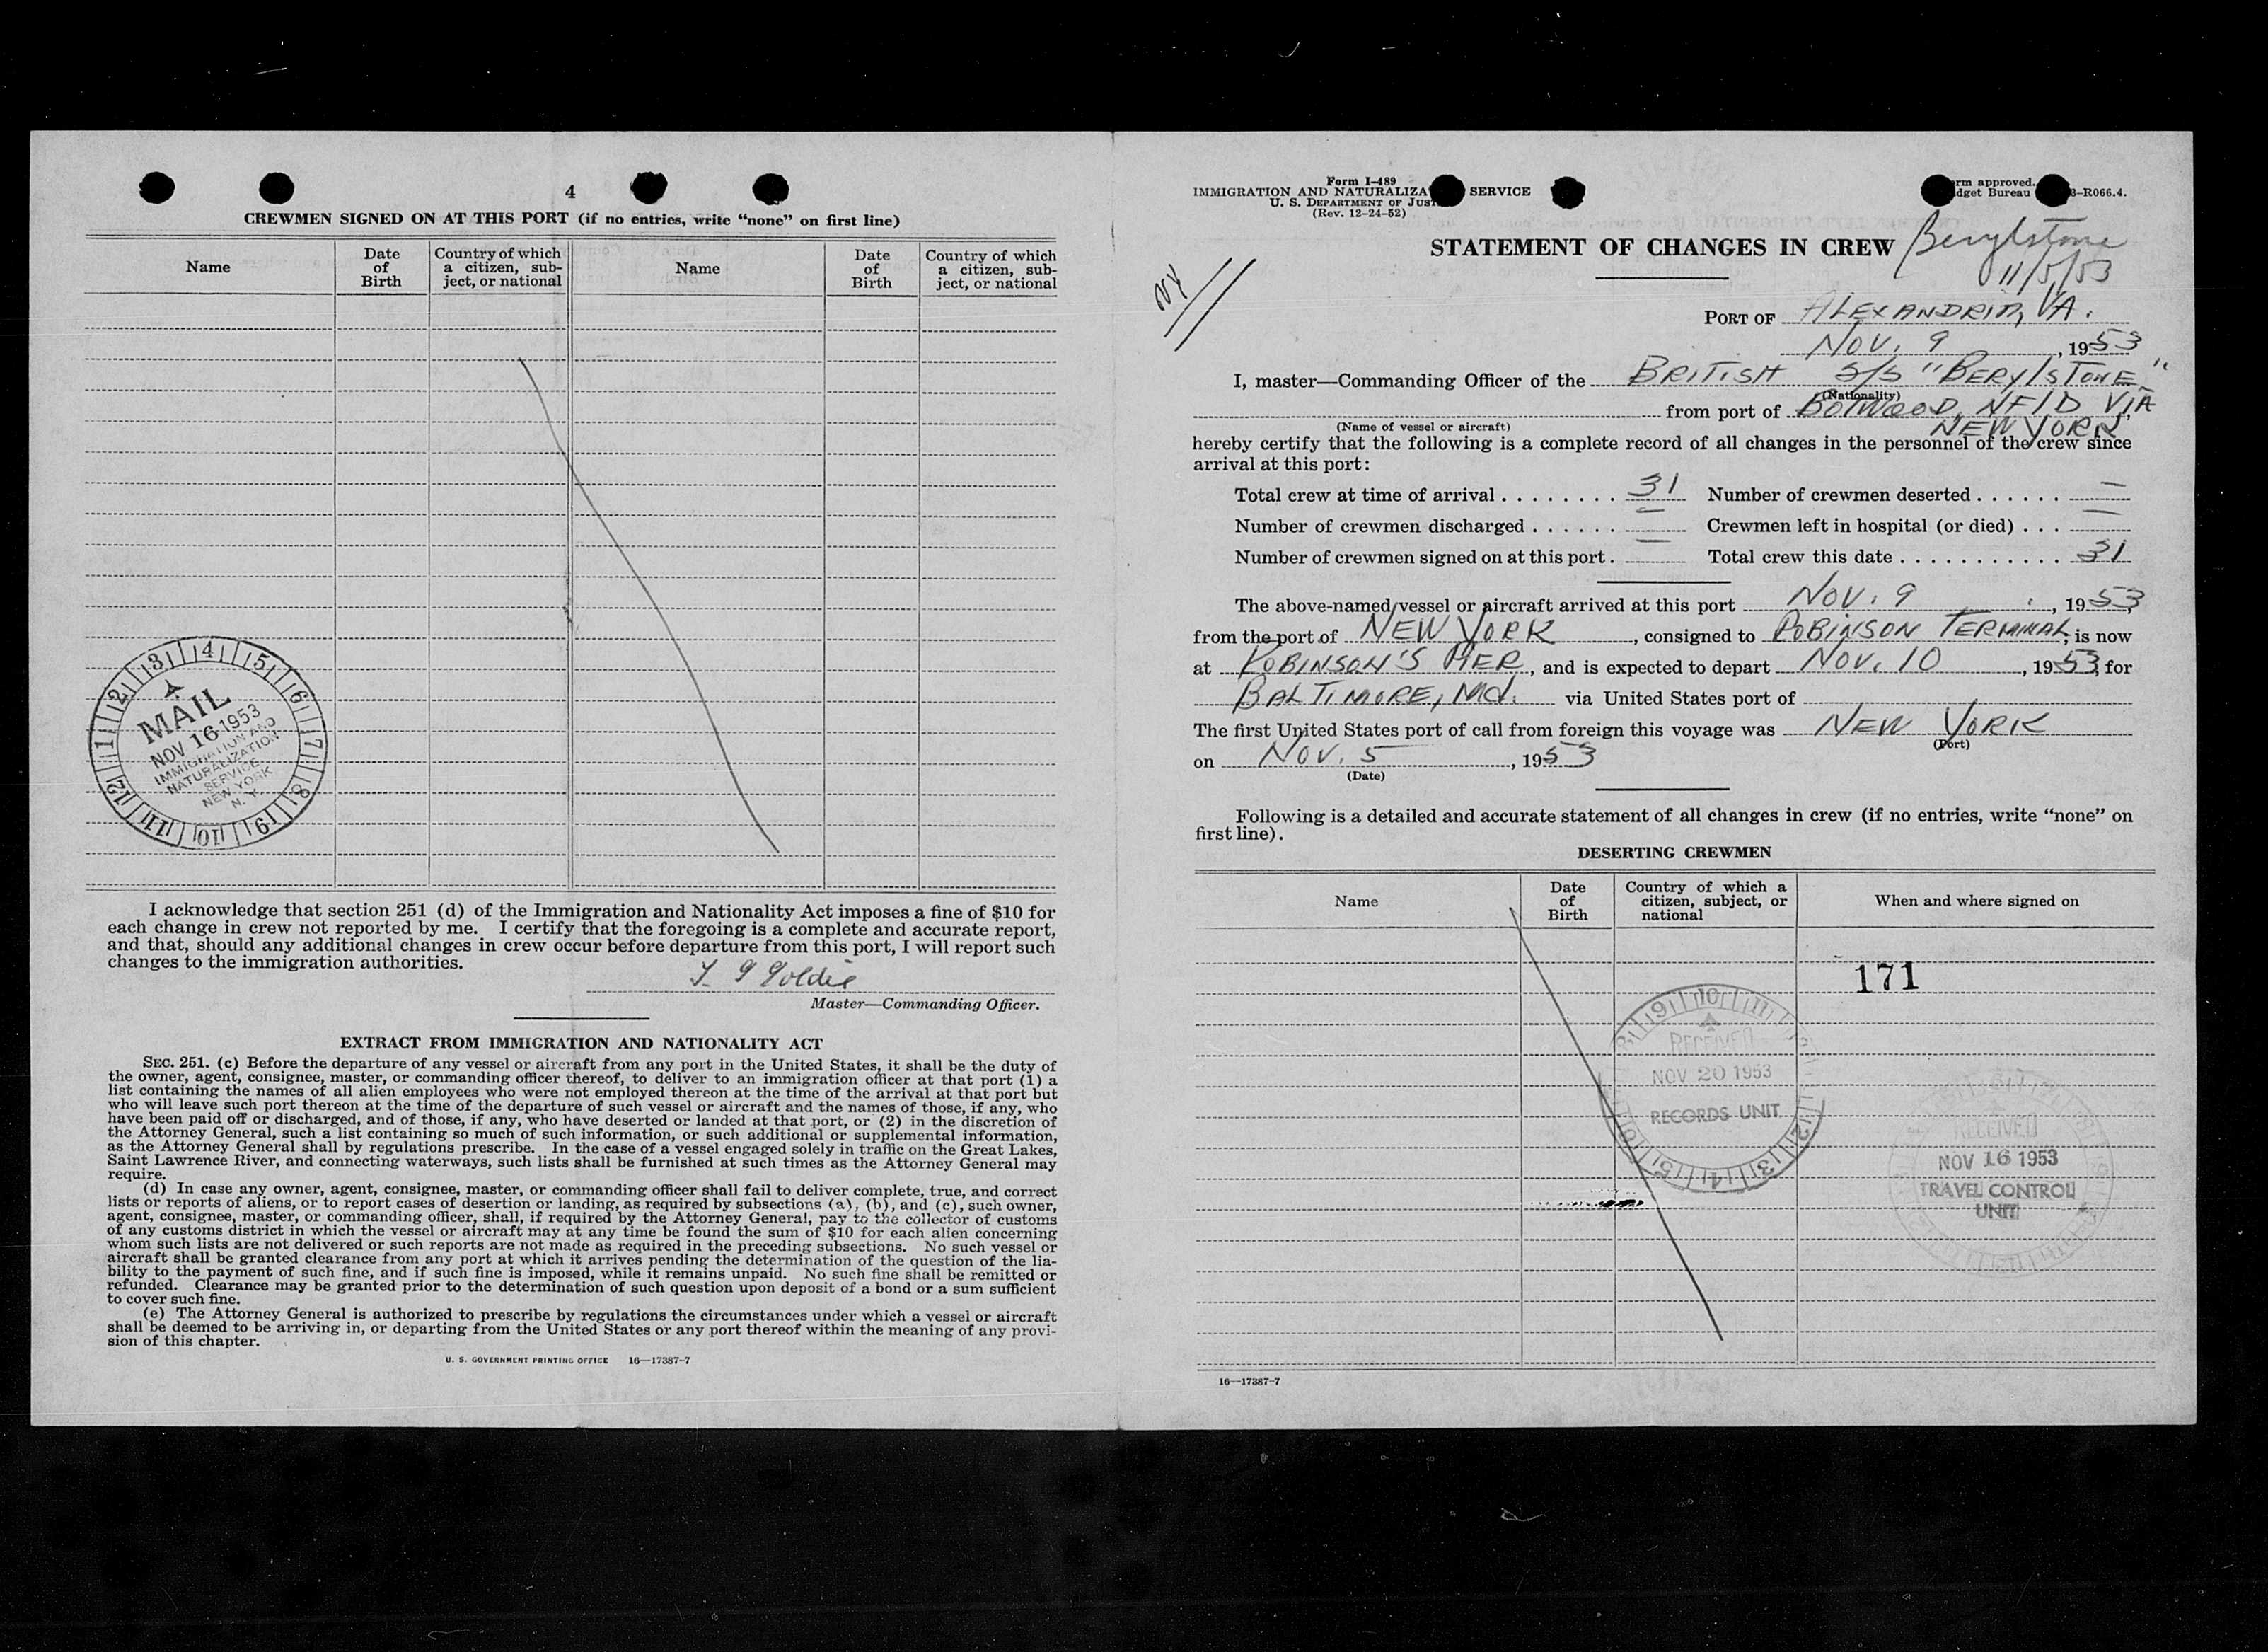 4
CREWMEN SIGNED ON AT THIS PORT (if no entries, write "none" on first line)
Name
Date of Birth
Country of which a citizen, subject, or national
Name
Date of Birth
Country of which a citizen, subject, or national
1 2 3 4 5 6 7 8 9 10 11 12
MAIL
NOV 16 1953
IMMIGRATION AND
NATURALIZATION
SERVICE
NEW YORK
N. Y.
I acknowledge that section 251 (d) of the Immigration and Nationality Act imposes a fine of $10 for
each change in crew not reported by me. I certify that the foregoing is a complete and accurate report,
and that, should any additional changes in crew occur before departure from this port, I will report such
changes to the immigration authorities.
Goldie
Master—Commanding Officer.
EXTRACT FROM IMMIGRATION AND NATIONALITY ACT
SEC. 251. (c) Before the departure of any vessel or aircraft from any port in the United States, it shall be the duty of
the owner, agent, consignee, master, or commanding officer thereof, to deliver to an immigration officer at that port (1) a
list containing the names of all alien employees who were not employed thereon at the time of the arrival at that port but
who will leave such port thereon at the time of the departure of such vessel or aircraft and the names of those, if any, who
have been paid off or discharged, and of those, if any, who have deserted or landed at that port, or (2) in the discretion of
the Attorney General, such a list containing so much of such information, or such additional or supplemental information,
as the Attorney General shall by regulations prescribe. In the case of a vessel engaged solely in traffic on the Great Lakes,
Saint Lawrence River, and connecting waterways, such lists shall be furnished at such times as the Attorney General may
require.
(d) In case any owner, agent, consignee, master, or commanding officer shall fail to deliver complete, true, and correct
lists or reports of aliens, or to report cases of desertion or landing, as required by subsections (a), (b), and (c), such owner,
agent, consignee, master, or commanding officer, shall, if required by the Attorney General, pay to the collector of customs
of any customs district in which the vessel or aircraft may at any time be found the sum of $10 for each alien concerning
whom such lists are not delivered or such reports are not made as required in the preceding subsections. No such vessel or
aircraft shall be granted clearance from any port at which it arrives pending the determination of the question of the lia-
bility to the payment of such fine, and if such fine is imposed, while it remains unpaid. No such fine shall be remitted or
refunded. Clearance may be granted prior to the determination of such question upon deposit of a bond or a sum sufficient
to cover such fine.
(e) The Attorney General is authorized to prescribe by regulations the circumstances under which a vessel or aircraft
shall be deemed to be arriving in, or departing from the United States or any port thereof within the meaning of any provi-
sion of this chapter.
U. S. GOVERNMENT PRINTING OFFICE 16—17387-7
Form I-489
IMMIGRATION AND NATURALIZA SERVICE
U. S. DEPARTMENT OF JUST
(Rev. 12-24-52)
rm approved.
dget Bureau 3-R066.4.
STATEMENT OF CHANGES IN CREW
Berylstone
11/5/53
NY
PORT OF ALEXANDRIA, VA.
NOV. 9, 1953
I, master—Commanding Officer of the BRITISH S/S "BERYLSTONE"
(Nationality)
from port of BOTWOOD, NFLD VIA
(Name of vessel or aircraft) NEW YORK
hereby certify that the following is a complete record of all changes in the personnel of the crew since
arrival at this port:
Total crew at time of arrival . . . . . . . . 31 Number of crewmen deserted . . . . . . —
Number of crewmen discharged . . . . . . — Crewmen left in hospital (or died) . . . —
Number of crewmen signed on at this port . — Total crew this date . . . . . . . . . . . . 31
The above-named vessel or aircraft arrived at this port NOV. 9, 1953,
from the port of NEW YORK, consigned to ROBINSON TERMINAL, is now
at ROBINSON'S PIER, and is expected to depart NOV. 10, 1953, for
BALTIMORE, Md. via United States port of
The first United States port of call from foreign this voyage was NEW YORK
(Port)
on NOV. 5, 1953
(Date)
Following is a detailed and accurate statement of all changes in crew (if no entries, write "none" on
first line).
DESERTING CREWMEN
Name
Date of Birth
Country of which a citizen, subject, or national
When and where signed on
171
RECEIVED
NOV 20 1953
RECORDS UNIT
RECEIVED
NOV 16 1953
TRAVEL CONTROL
UNIT
16—17387-7